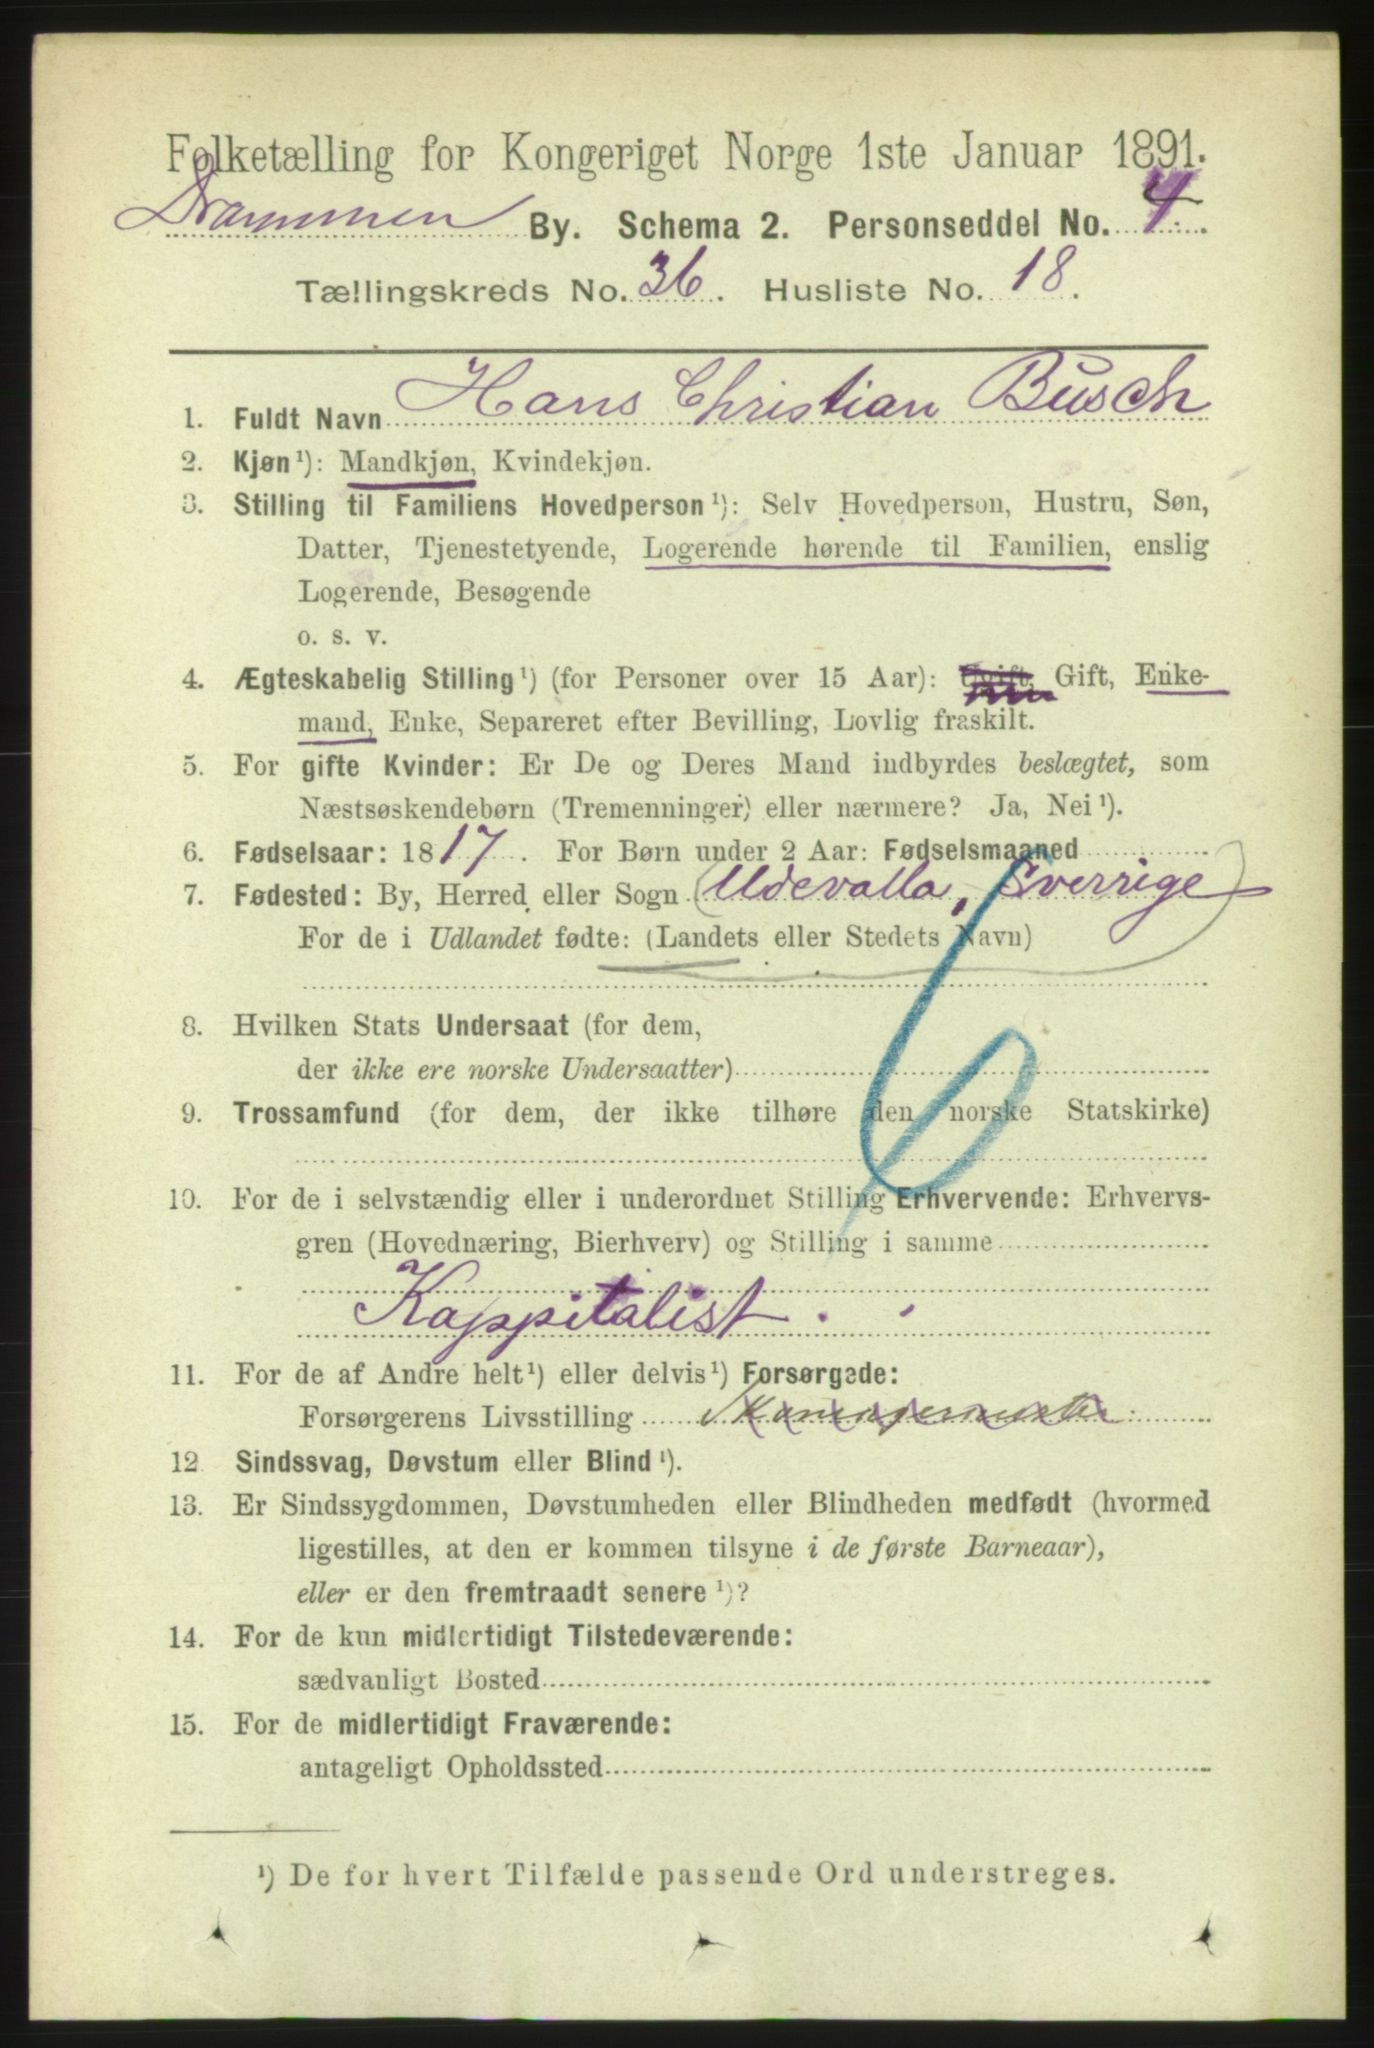 Folketælling for Kongeriget Norge 1ste Januar 1891.
Drammen By. Schema 2. Personseddel No. 4.
Tællingskreds No. 36. Husliste No. 18.
1. Fuldt Navn Hans Christian Busch
2. Kjøn¹): Mandkjøn, Kvindekjøn.
3. Stilling til Familiens Hovedperson¹): Selv Hovedperson, Hustru, Søn,
Datter, Tjenestetyende, Logerende hørende til Familien, enslig
Logerende, Besøgende
o. s. v.
4. Ægteskabelig Stilling¹) (for Personer over 15 Aar): Ugift, Gift, Enke-
mand, Enke, Separeret efter Bevilling, Lovlig fraskilt.
5. For gifte Kvinder: Er De og Deres Mand indbyrdes beslægtet, som
Næstsøskendebørn (Tremenninger) eller nærmere? Ja, Nei¹).
6. Fødselsaar: 1817. For Børn under 2 Aar: Fødselsmaaned
7. Fødested: By, Herred eller Sogn (Udevalla, Sverrige)
For de i Udlandet fødte: (Landets eller Stedets Navn)
8. Hvilken Stats Undersaat (for dem,
der ikke ere norske Undersaatter)
6
9. Trossamfund (for dem, der ikke tilhøre den norske Statskirke)
10. For de i selvstændig eller i underordnet Stilling Erhvervende: Erhvervs-
gren (Hovednæring, Bierhverv) og Stilling i samme
Kappitalist.
11. For de af Andre helt¹) eller delvis¹) Forsørgede:
Forsørgerens Livsstilling
12 Sindssvag, Døvstum eller Blind¹).
13. Er Sindssygdommen, Døvstumheden eller Blindheden medfødt (hvormed
ligestilles, at den er kommen tilsyne i de første Barneaar),
eller er den fremtraadt senere¹)?
14. For de kun midlertidigt Tilstedeværende:
sædvanligt Bosted
15. For de midlertidigt Fraværende:
antageligt Opholdssted
¹) De for hvert Tilfælde passende Ord understreges.